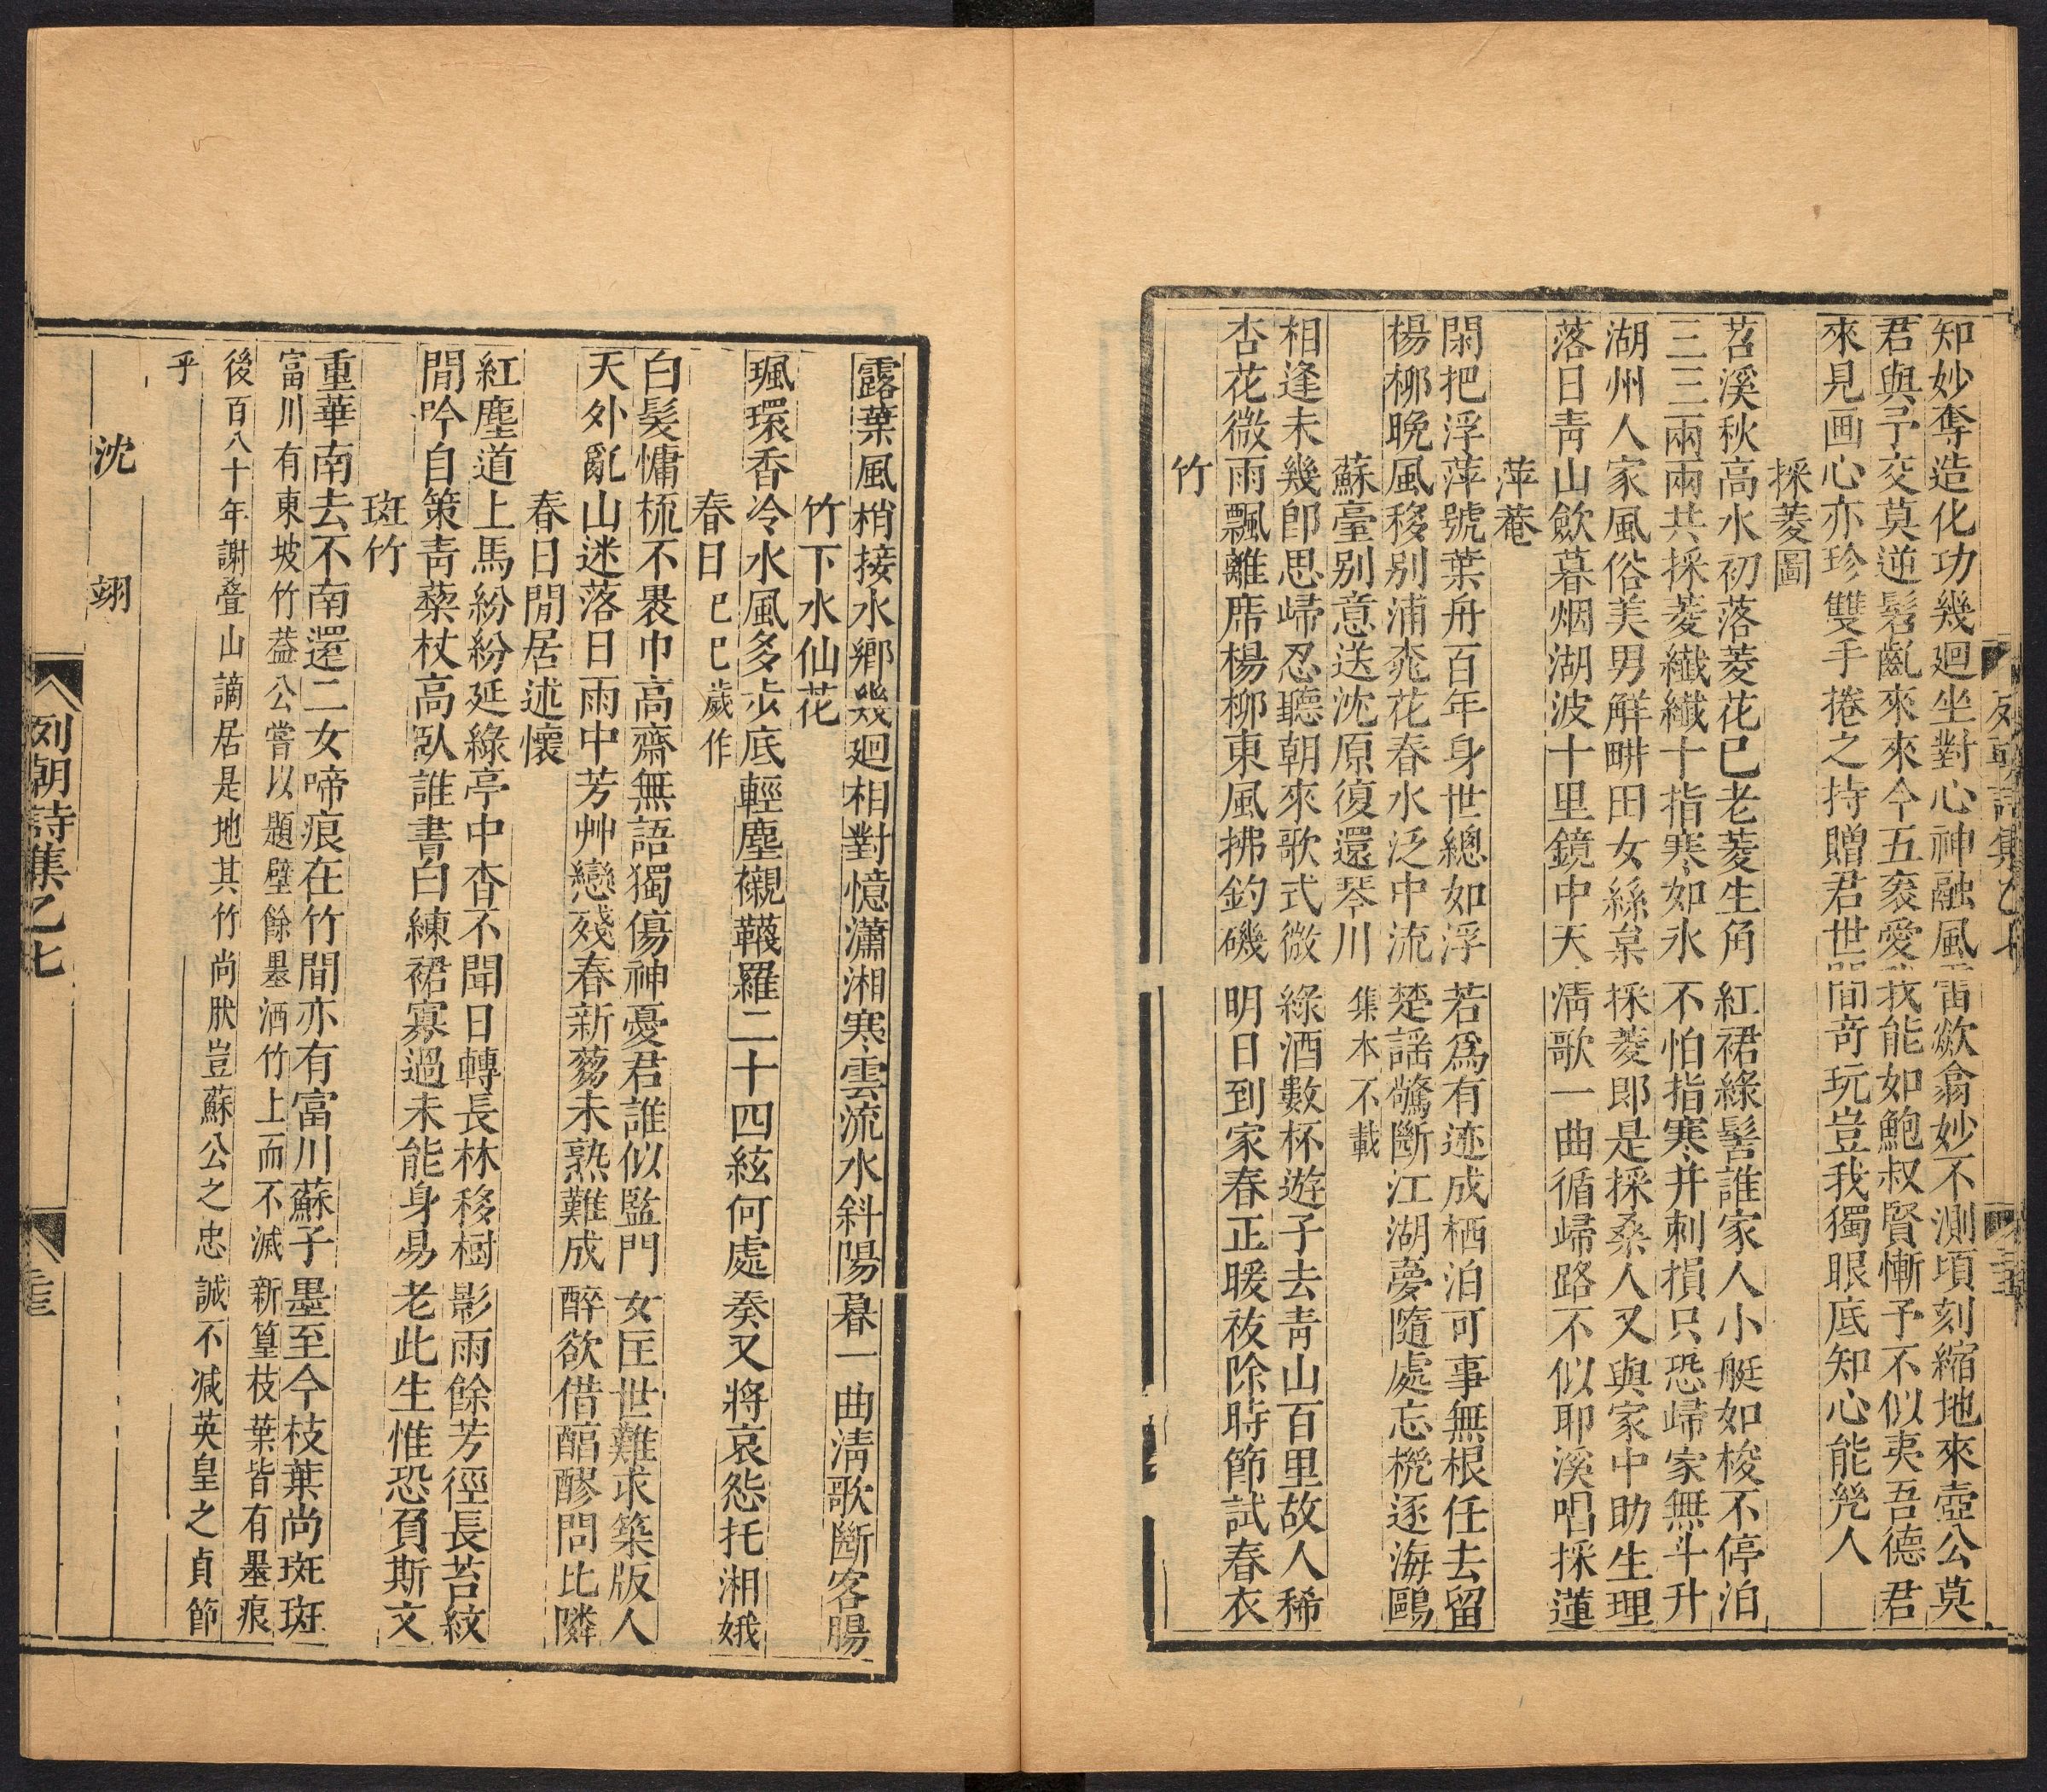 知妙奪造化功幾廻坐對心神融風雷歘翕妙不測頃刻縮地來壺公莫
君與予交莫逆髫齓來來今五袠愛我能如鮑叔賢慚予不似夷吾德君
來見画心亦珍雙手捲之持贈君世間奇玩豈我獨眼底知心能幾人
採菱圖
苕溪秋高水初落菱花已老菱生角紅裙綠髻誰家人小艇如梭不停泊
三三兩兩共採菱纖纖十指寒如氷不怕指寒并刺損只恐歸家無斗升
湖州人家風俗美男觧畊田女絲枲採菱郎是採桑人又與家中助生理
落日靑山歛暮烟湖波十里鏡中天淸歌一曲循歸路不似耶溪唱採蓮
萍菴
閑把浮萍號葉舟百年身世總如浮若爲有迹成栖泊可事無根任去留
楊柳晚風移别浦桃花春水泛中流楚謡驚斷江湖夢隨處忘機逐海鷗
蘇臺别意送沈原復還琴川集本不載
相逢未幾卽思歸忍聽朝來歌式微綠酒數杯遊子去靑山百里故人稀
杏花微雨飄離席楊柳東風拂釣磯明日到家春正暖祓除時節試春衣
竹
露葉風梢接水鄉幾廻相對憶瀟湘寒雲流水斜陽暮一曲淸歌斷客腸
竹下水仙花
珮環香冷水風多步底輕塵襯韈羅二十四絃何處奏又將哀怨托湘娥
春日已巳歲作
白髮慵梳不裹巾高齋無語獨傷神憂君誰似監門女匡世難求築版人
天外亂山迷落日雨中芳艸戀殘春新蒭未熟難成醉欲借醽醪問比隣
春日閒居述懷
紅塵道上馬紛紛延綠亭中杳不聞日轉長林移樹影雨餘芳徑長苔紋
閒吟自策靑藜杖高臥誰書白練裙寡過未能身易老此生惟恐負斯文
斑竹
重華南去不南還二女啼痕在竹間亦有富川蘇子墨至今枝葉尚斑斑
富川有東坡竹葢公嘗以題壁餘墨洒竹上而不滅新篁枝葉皆有墨痕
後百八十年謝疊山謫居是地其竹尚肰豈蘇公之忠誠不减英皇之貞節
乎
沈翊
列朝詩集乙七